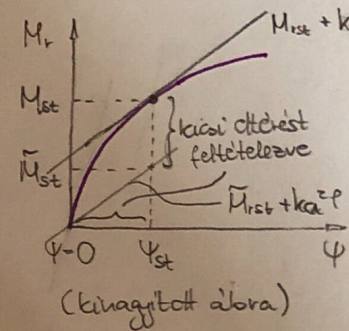 M_r
M_rst + k
M_st
kicsi eltérést
feltételezve
M̃_st
M̃_rst + k_a²φ
ψ-0
ψ_st
ψ
(kinagyított ábra)